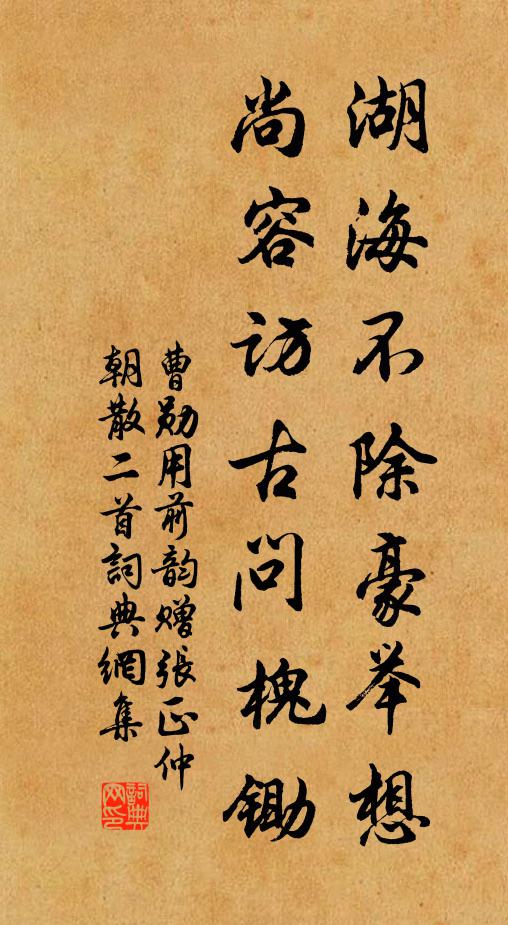 湖海不除豪举想
尚容访古问槐锄
曹勋用前韵赠張正仲
朝散二首詞典網集
詞典
网印